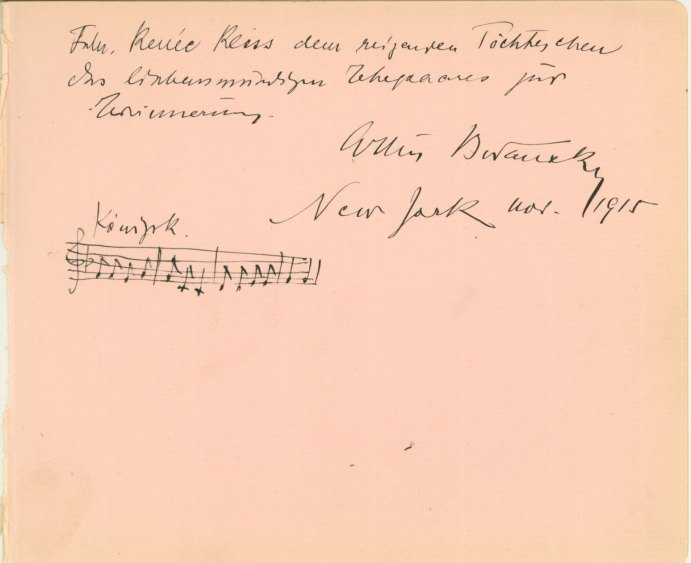 Frln. Renée Reiss dem reizenden Töchterchen
des liebenswürdigen Ehepaares zur
Erinnerung.
Arthur Bodanzky
New York nov. 1915
Königsk.